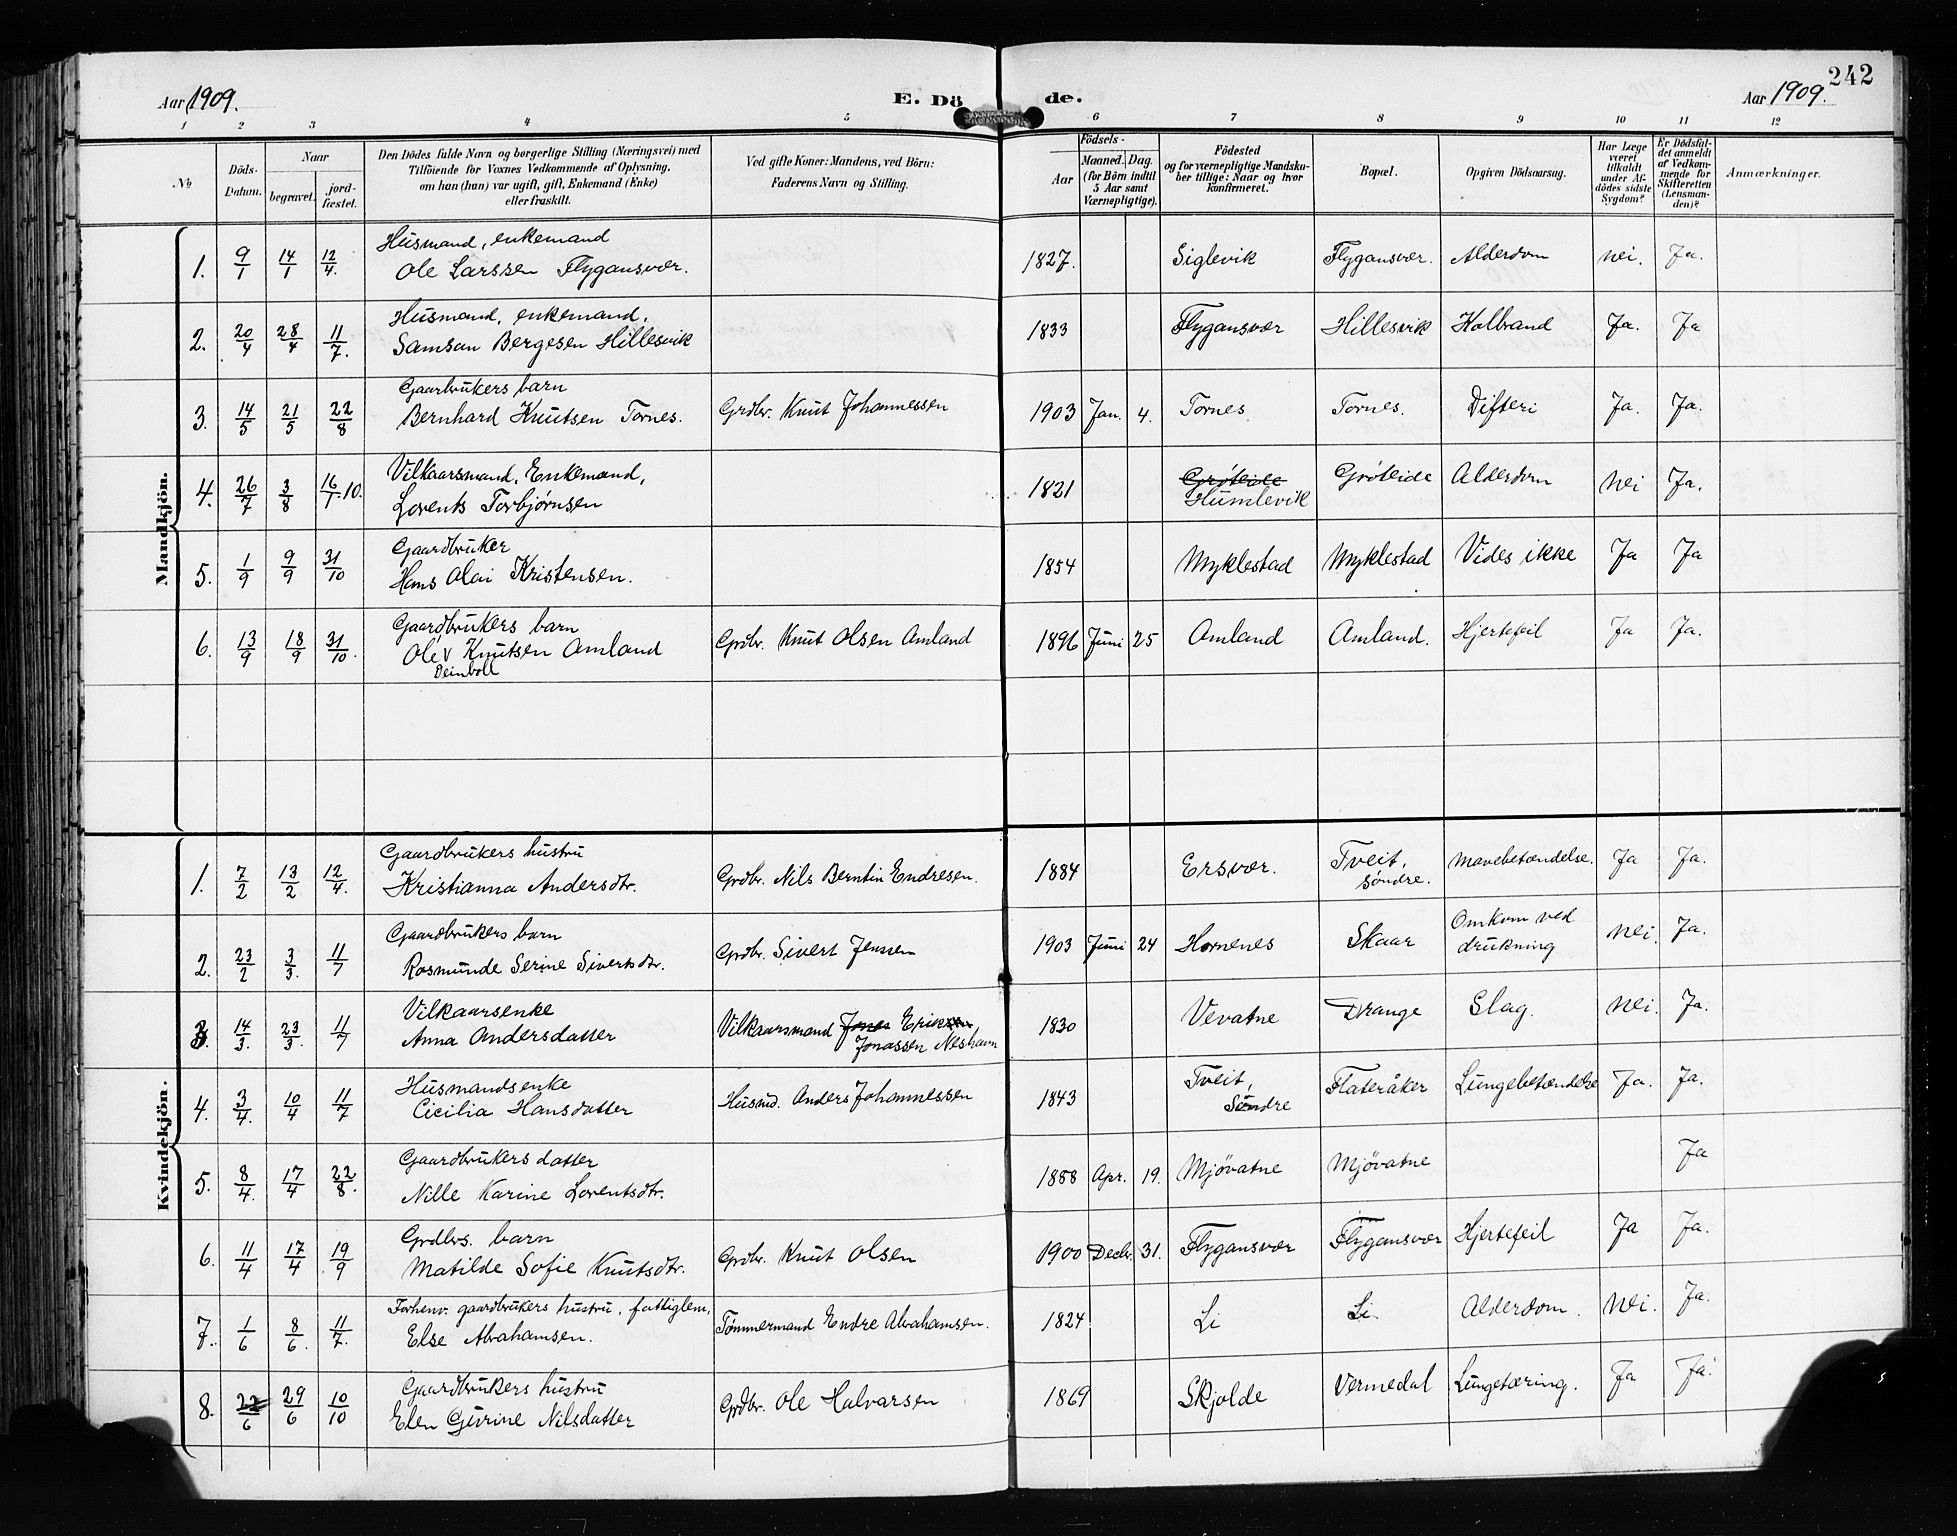 242
Aar 1909. E. Dö de. Aar 1909.
1 2 3 4 5 6 7 8 9 10 11 12
No
Döds-Datum.
Naar
begravet.
jord-fæstet.
Den Dödes fulde Navn og borgerlige Stilling (Næringsvei) med
Tilföiende for Voxnes Vedkommende af Oplysning,
om han (hun) var ugift, gift, Enkemand (Enke)
eller fraskilt.
Ved gifte Koner: Mandens, ved Börn:
Faderens Navn og Stilling.
Födsels-
Aar
Maaned. Dag.
(for Börn indtil
5 Aar samt
Værnepligtige).
Födested
og for værnepligtige Mandska-
ber tillige: Naar og hvor
konfirmeret.
Bopæl.
Opgiven Dödsaarsag.
Har Læge
været
tilkaldt
under Af-
dödes sidste
Sygdom?
Er Dödsfal-
det anmeldt
af Vedkom-
mende for
Skifteretten
(Lensman-
den)?
Anmærkninger.
Mandkjön.
Husmand, enkemand
1. 9/1 14/1 12/4. Ole Larssen Flygansvær. 1827. Siglevik Flygansvær. Alderdom nei. Ja.
Husmand, enkemand.
2. 20/4 28/4 11/7. Samson Bergesen Hillesvik 1833 Flygansvær Hillesvik Kolbrand Ja. Ja
Gaarbrukers barn
3. 14/5 21/5 22/8 Bernhard Knutsen Tornes. Grdbr. Knut Johannessen 1903 Jan. 4. Tornes Tornes. Difteri Ja. Ja.
Vilkaarsmand, Enkemand,
4. 26/7 3/8 16/1.10. Lorents Torbjørnsen 1821 Grøteide Humlevik Grøteide Alderdom Nei Ja.
Gaardbruker
5. 1/9 9/9 31/10 Hans Olai Kristensen. 1854 Myklestad Myklestad Vides ikke Ja Ja
Gaardbrukers barn
6. 13/9 18/9 31/10. Ole Knutsen Amland Grdbr. Knut Olsen Amland 1896 Juni 25 Amland Amland. Hjertefeil Ja Ja.
Deinboll
Kvindekjön.
Gaardbrukers hustru
1. 7/2 13/2 12/4. Kristianna Andersdtr. Grdbr. Nils Berntin Endresen. 1884 Ersvær. Tveit, søndre. Mavebetændelse. Ja Ja.
Gaardbrukers barn
2. 23/2 3/3. 11/7 Rosmunde Serine Sivertsdtr. Grdbr. Sivert Jenssen 1903 Juni 24 Hornenes Skaar Omkom ved drukning nei. Ja.
Vilkaarsenke
3. 14/3. 23/3. 11/7 Anna Andersdatter Vilkaarsmand Jones Eriksen Jonassen Neshavn 1830 Vevatne Drange Slag. Nei. Ja.
Husmandsenke
4. 3/4. 10/4 11/7 Cicilia Hansdatter Husmd. Anders Johannessen 1843 Tveit, Søndre Flateråker Lungebetændelse Ja. Ja.
Gaardbrukers datter
5. 8/4. 17/4 22/8. Nille Karine Lorentsdtr. 1888 Apr. 19. Mjövatne Mjövatne Ja
Grdbrs. barn
6. 11/4 17/4 19/9 Matilde Sofie Knutsdtr. Grdbr. Knut Olsen 1900 Decbr. 31. Flygansvær Flygansvær Hjertefeil Ja Ja.
Forhenv. gaardbrukers hustru, fattiglem,
7. 1/6 8/6. 11/7. Else Abrahamsen. Tømmermand Endre Abrahamsen. 1824 Li Li Alderdom. Nei. Ja.
Gaardbrukers hustru
8. 22/6 29/6 10/10 Elen Gurine Nilsdatter Grdbr. Ole Halvarsen 1869 Skjolde Vermedal Lungetæring. Ja Ja.